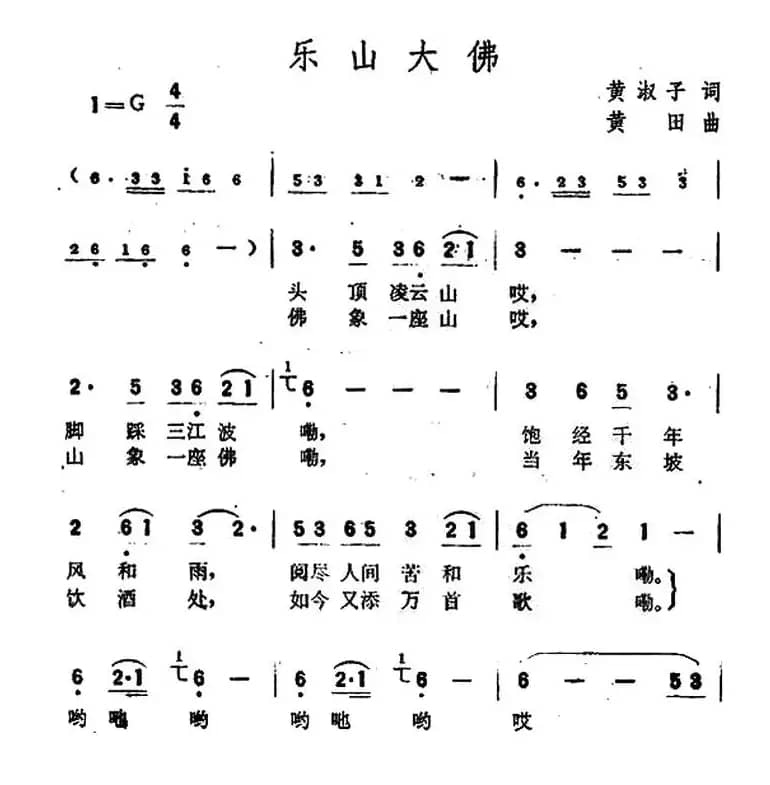 乐山大佛
1=G 4/4
黄淑子 词
黄 田 曲
( 6· 33 16 6 | 53 31 2 — | 6· 23 53 3 |
26 16 6 — ) | 3· 5 36 21 | 3 — — — |
头 顶 凌云 山 哎,
佛 象 一座 山 哎,
2· 5 36 21 | 1 6 — — — | 3 6 5 3· |
脚 踩 三江 波 嘞, 饱 经 千 年
山 象 一座 佛 嘞, 当 年 东 坡
2 61 3 2· | 53 65 3 21 | 6 1 2 1 — |
风 和 雨, 阅尽 人间 苦 和 乐 嘞。
饮 酒 处, 如今 又添 万 首 歌 嘞。
6 2·1 1 6 — | 6 2·1 1 6 — | 6 — — 53 |
哟 吔 哟 哟 吔 哟 哎